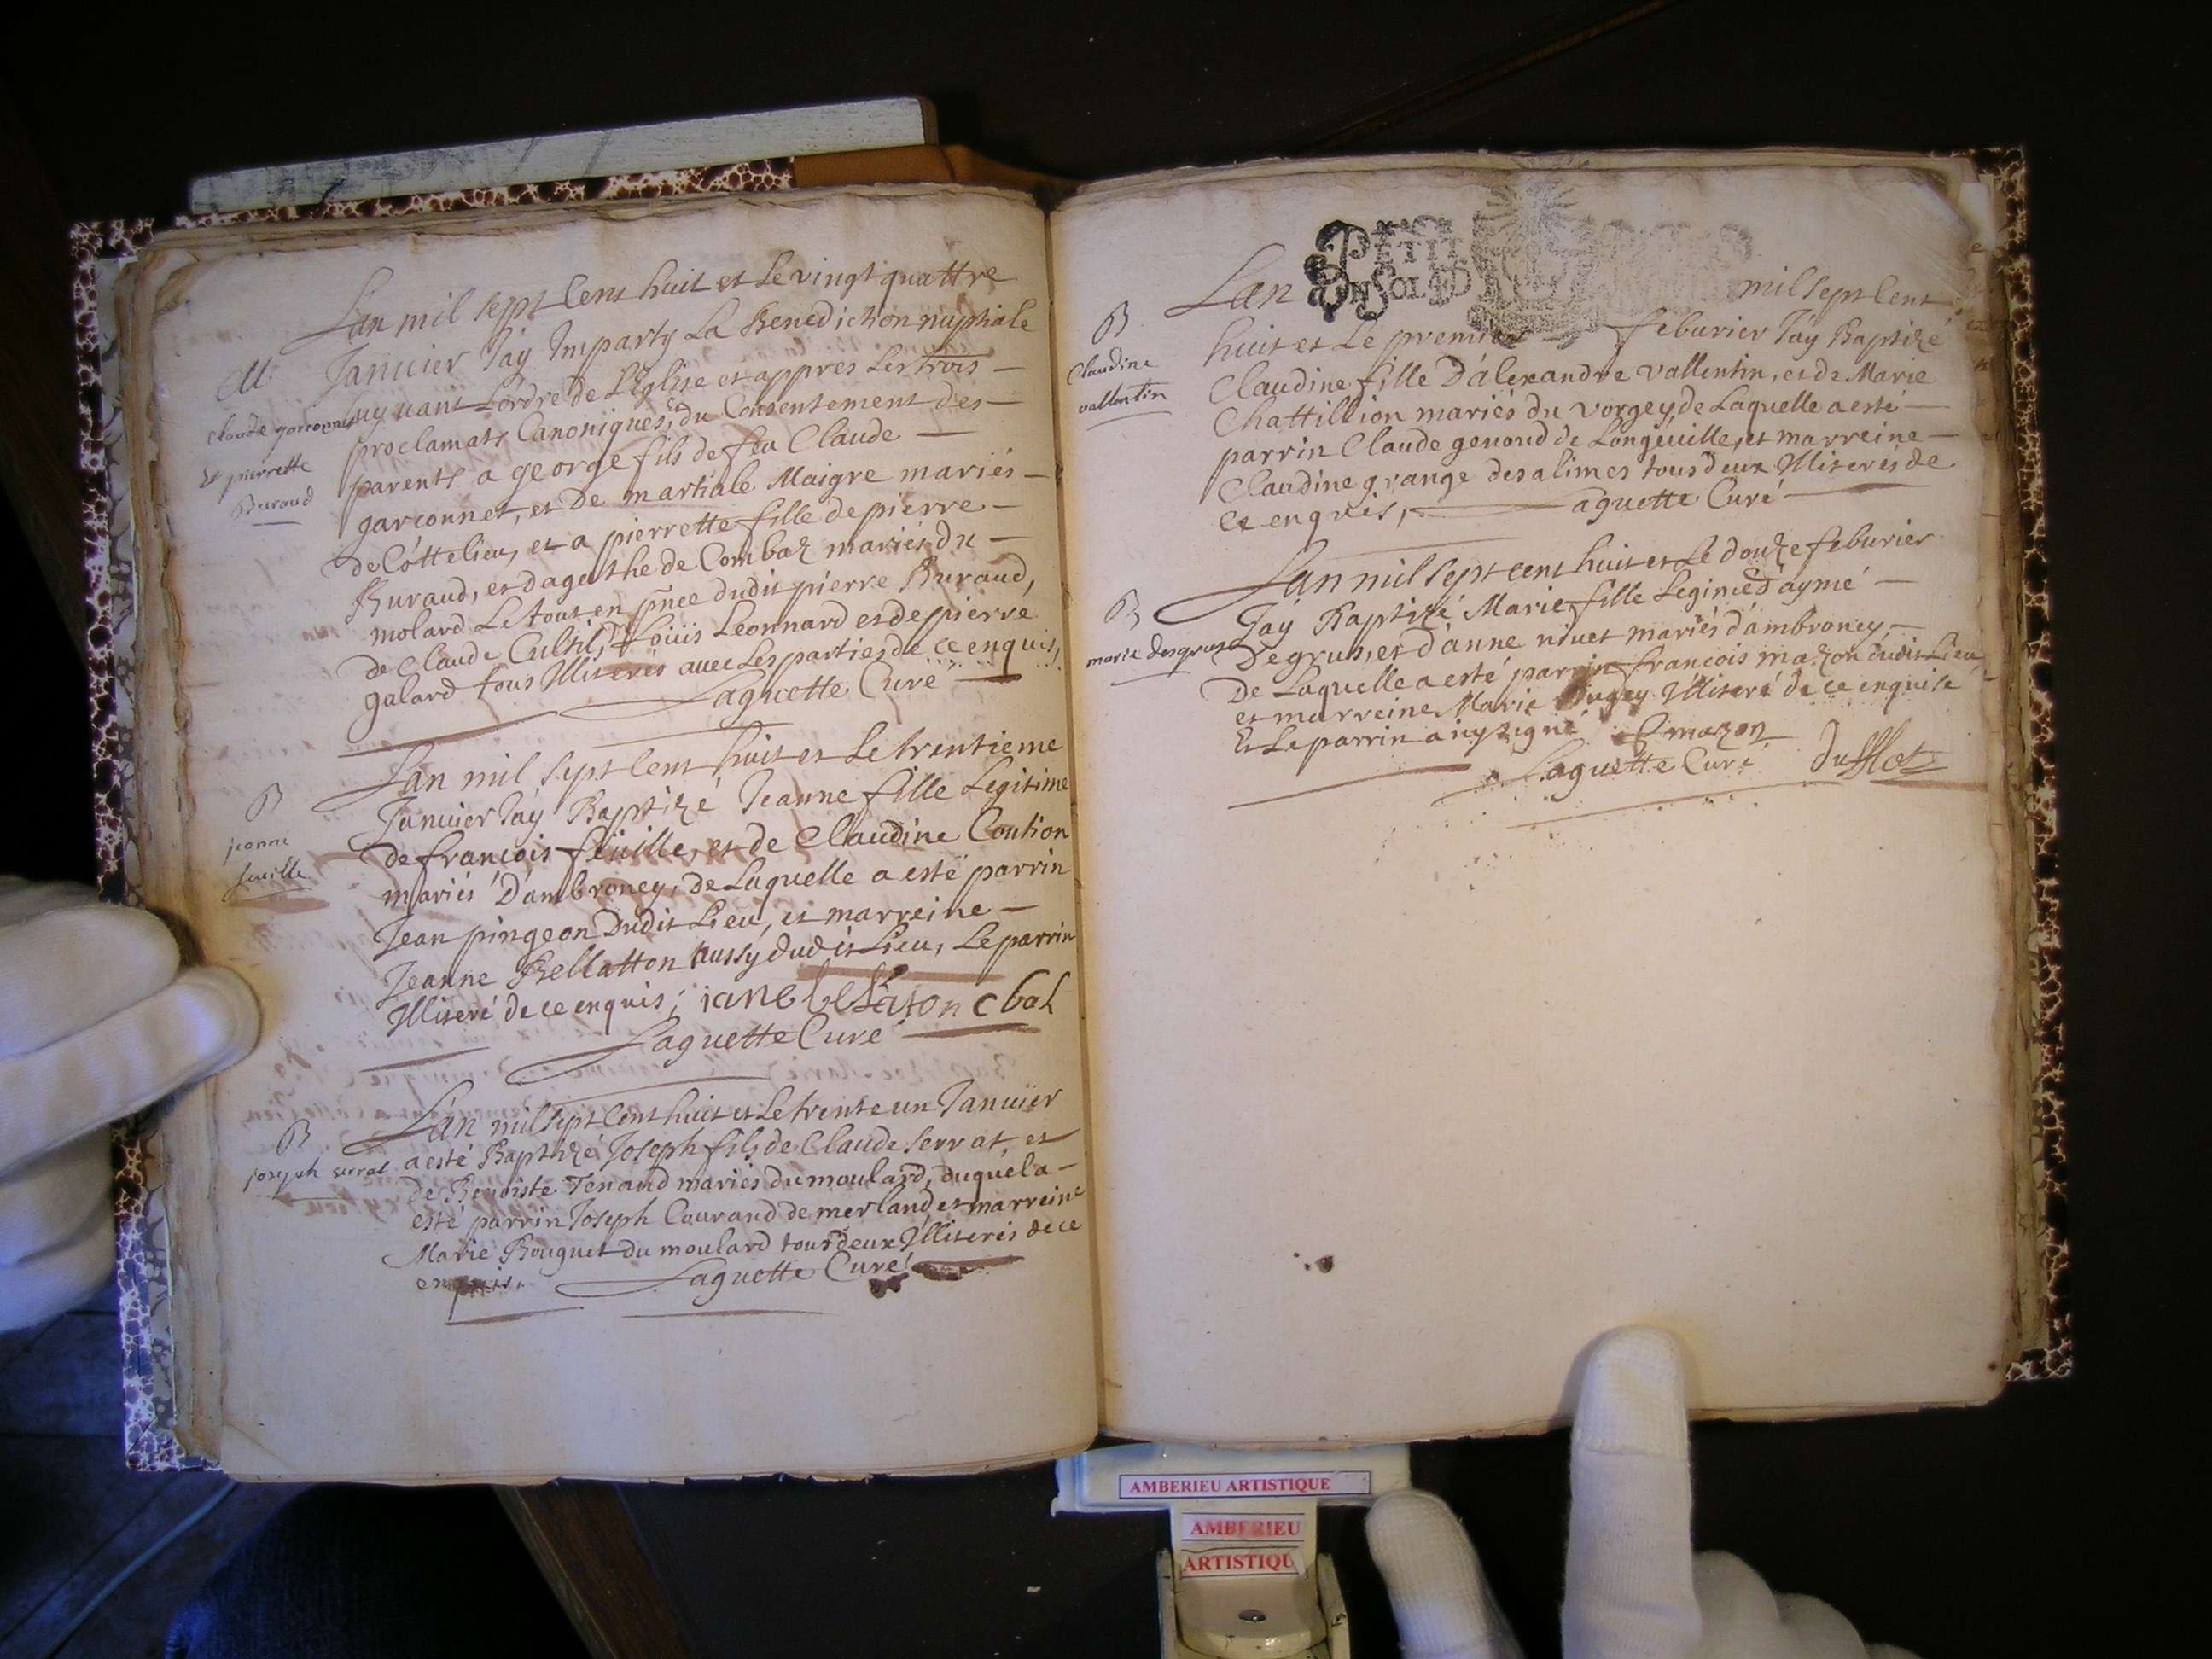 L'an mil sept Cent huit et Le vingt quattre
M.
Januier J'ay Imparty La Benediction nuptiale
suyuant L'ordre de L'Eglise et appres Les trois
claude garconnet
proclamats Canoniques, Et du Consentement des
Et pierrette
Buraud
parents a george fils de feu Claude
garconnet, et de martiale Maigre mariés
de Cóttelieu, et a pierrette fille de pierre
Buraud, et d'agasthe de Combaz mariés du
molard Le tout en pñce dudit pierre Buraud,
de Claude Cultil, de Loüis Leonnard et de pierre
galard tous Illiterés auec Les parties de ce enquis,
Laguette Curé
L'an mil sept Cent huit et Le trentieme
B
jeanne
feuille
Januier J'ay Baptizé Jeanne fille Legitime
de francois feüille, et de Claudine Coution
mariés D'ambroney, de Laquelle a esté parrin
Jean pingeon Dudit Lieu, et marreine
Jeanne Bellatton aussy dudit Lieu, Le parrin
Illiteré de ce enquis; iane belaton
Laguette Curé
L'an mil sept Cent huit et Le trente un Januier
B
joseph serrat
a esté Baptizé Joseph fils de Claude Serrat, et
de Benoiste Tenaud mariés du moulard, duquel a
esté parrin Joseph Courand de merland et marreine
Marie Bouguet du moulard tous deux Illiterés de ce
enquis,
Laguette Curé
PETIT
UN SOL 4 D
L'an mil sept Cent
B
Claudine
vallentin
huit et Le premier feburier J'ay Baptizé
Claudine fille D'alexandre vallentin, et de Marie
Chattillion mariés du vorgey, de Laquelle a esté
parrin Claude genoud de Longeuille, et marreine
Claudine grange des alimes tous deux Illiterés de
ce enquis,
Laguette Curé
L'an mil sept cent huit et Le douze feburier
B
marie degrus
J'ay Baptizé Marie fille Legime D'aymé
Degrus, et d'anne niuet mariés d'ambroney,
De Laquelle a esté parrin francois mazon dudit Lieu
et marreine Marie Dugey Illiteré de ce enquise
Et Le parrin a icy signé F mazon
Laguette Curé